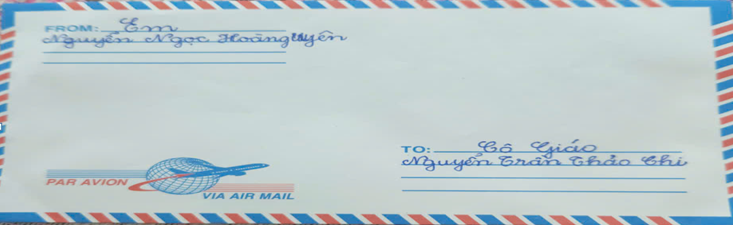 FROM: Em
Nguyễn Ngọc Hoàng Uyên
TO: Cô Giáo
Nguyễn Trần Thảo Chi
PAR AVION
VIA AIR MAIL